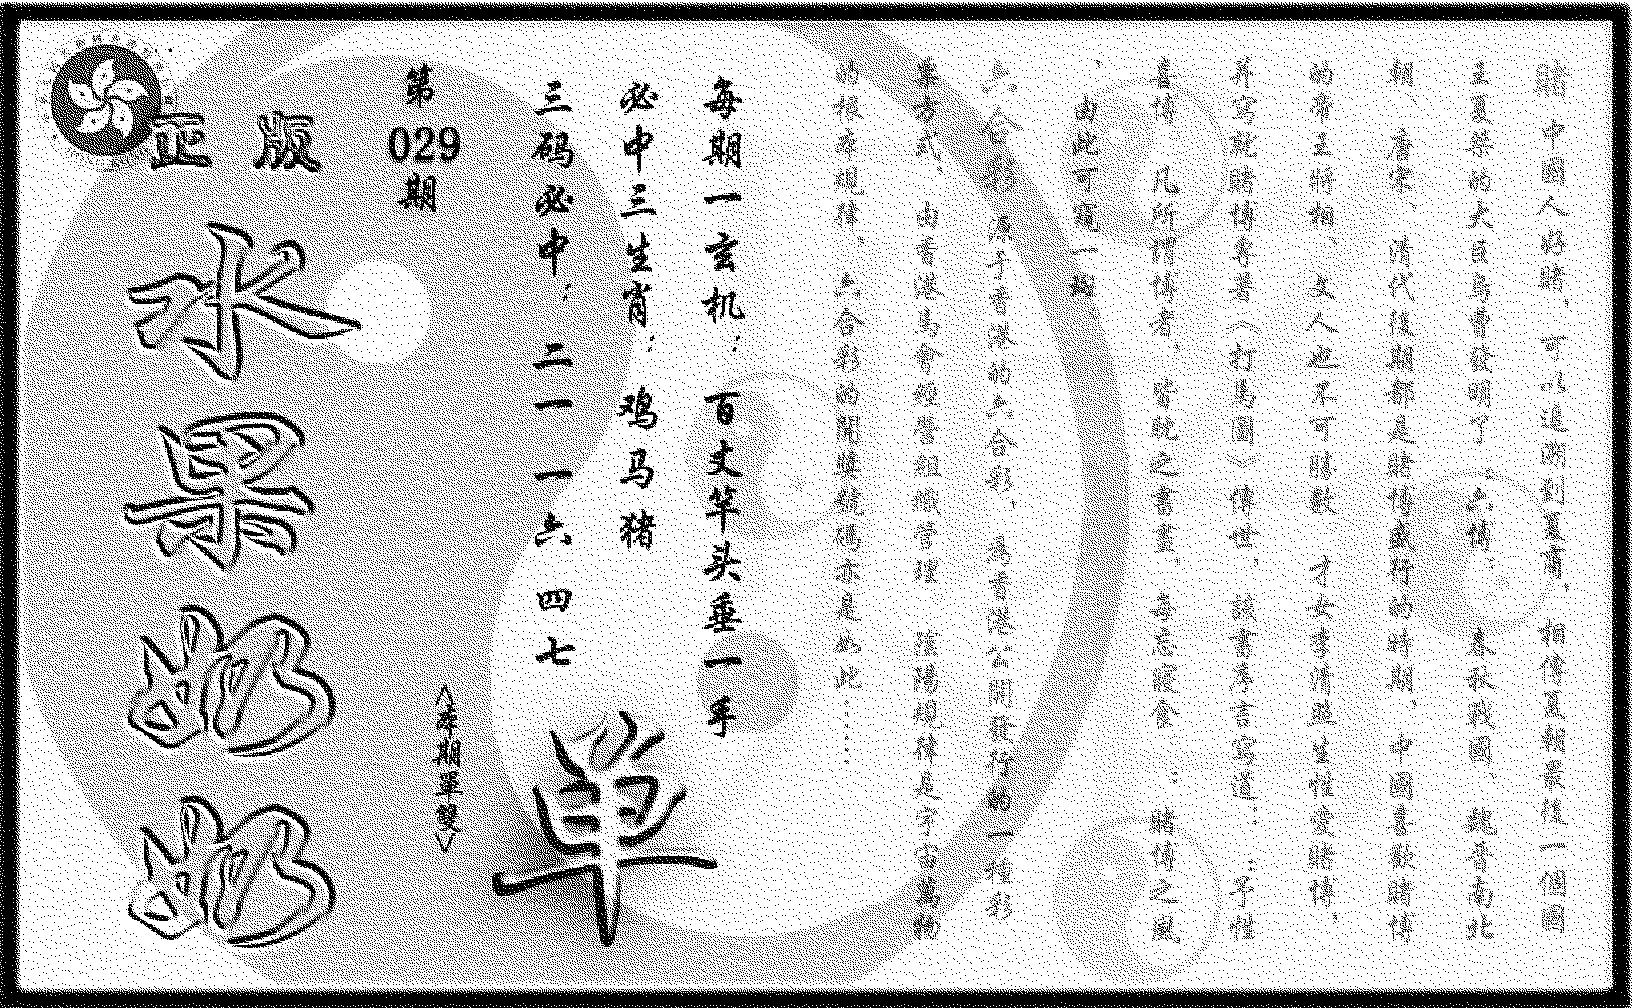 賭中國人好賭，可以追溯到夏商，相傳夏朝最後一個國
王夏桀的大臣烏曹發明了：六博，春秋戰國、魏晉南北
朝、唐宋、清代後期都是賭博盛行的時期，中國喜歡賭博
的帝王將相、文人也不可勝數、才女李清照生性愛賭博，
并寫就賭博專著〈打馬圖〉傳世，該書序言寫道：：予性
喜博、凡所謂博者，皆耽之晝夜，每忘寢食：賭博之風
、由此可窺一斑
六合彩，源于香港的六合彩，為香港公開發行的一種彩
票方式，由香港馬會經營組織管理、陰陽規律是宇宙萬物
的根本規律，六合彩的開獎號碼亦是如此……
每期一玄机：百丈竿头垂一手
必中三生肖：鸡马猪
三码必中：二一一六四七
第029期
正版
水果奶奶
〈本期單雙〉
单